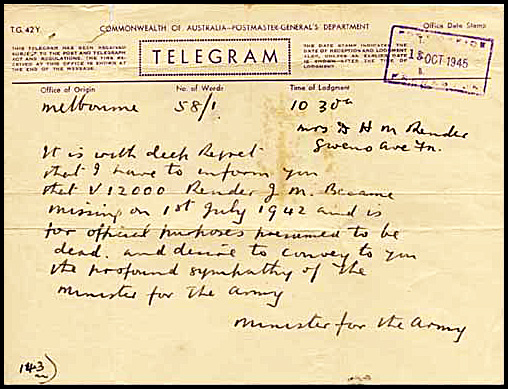 T.G. 42Y.
COMMONWEALTH OF AUSTRALIA—POSTMASTER-GENERAL'S DEPARTMENT
Office Date Stamp
THIS TELEGRAM HAS BEEN RECEIVED
SUBJECT TO THE POST AND TELEGRAPH
ACT AND REGULATIONS. THE TIME RE-
CEIVED AT THIS OFFICE IS SHOWN AT
THE END OF THE MESSAGE.
TELEGRAM
THE DATE STAMP INDICATES THE
DATE OF RECEPTION AND LODGMENT
AN EARLIER DATE
IS SHOWN AFTER THE TIME OF
LODGMENT.
OCT 1945
Office of Origin
No. of Words
Time of Lodgment
Melbourne
58/1
10 30a
Mrs D H M Render
Ave
It is with deep Regret
that I have to inform you
that V12000 Render J. M. Became
missing on 1st July 1942 and is
for official purposes presumed to be
dead. and desire to convey to you
the profound sympathy of the
Minister for the Army
Minister for the Army